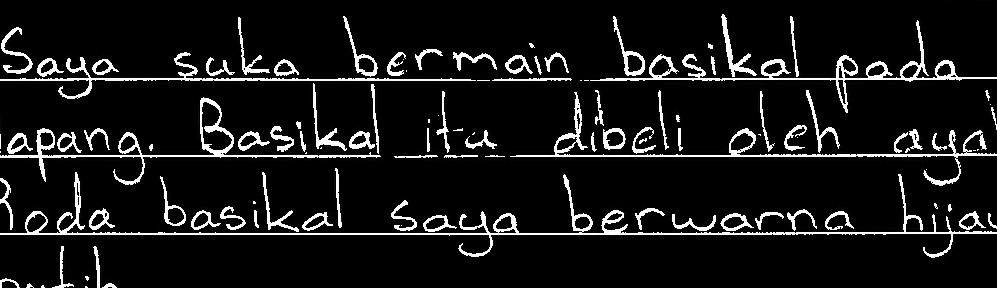 Saya suka bermain basikal pada
lapang. Basikal itu dibeli oleh ayah
Roda basikal saya berwarna hijau
putih